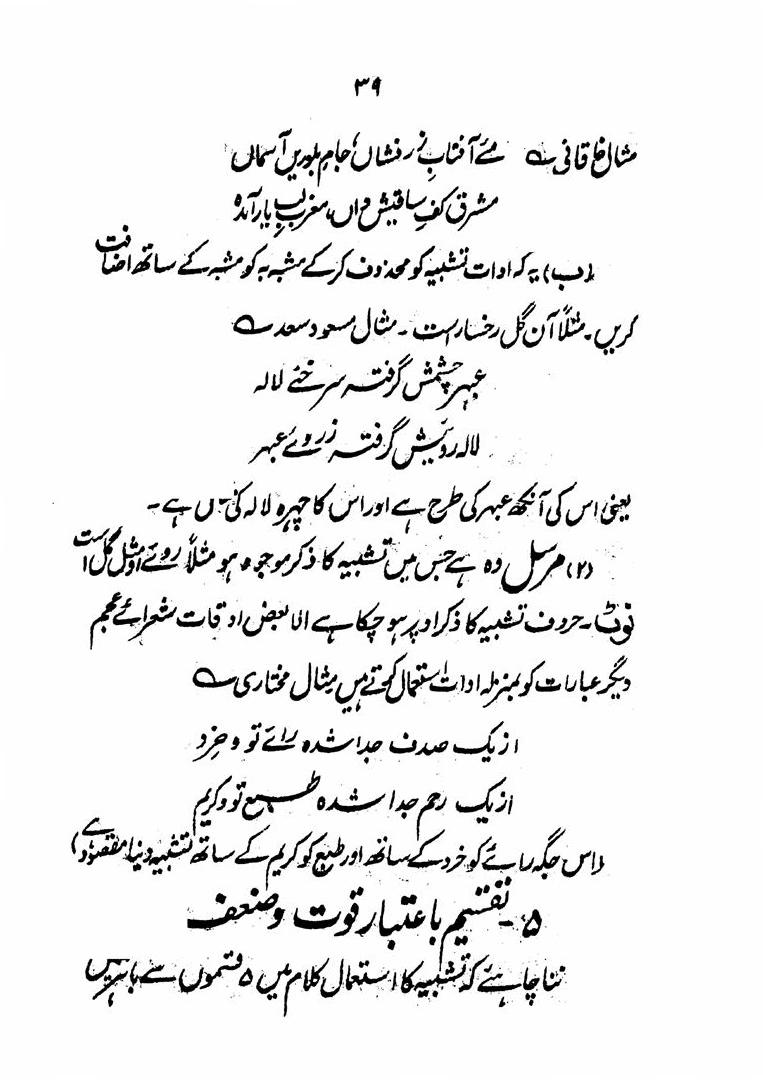 ۳۹
مثال خاقانی ؎ مئے آفتابِ زر فشاں، جام بلوریں آسماں
مشرق کفِ ساقیش داں، مغرب لبِ یار آمدہ
(ب) یہ کہ ادات تشبیہ کو محذوف کر کے مشبہ بہ کو مشبہ کے ساتھ اضافت
کریں۔ مثلاً آن گل رخسار است۔ مثال مسعود سعد ؎
عبہر چشمش گرفتہ سرخئے لالہ
لالہ رویش گرفتہ زروئے عبہر
یعنی اس کی آنکھ عبہر کی طرح ہے اور اس کا چہرہ لالہ کی ہے۔
(۲) مرسل وہ ہے جس میں تشبیہ کا ذکر موجود ہو مثلاً روئے او مثل گل است
نوٹ۔ حروف تشبیہ کا ذکر اوپر ہو چکا ہے الا بعض اوقات شعرائے عجم
دیگر عبارات کو بمنزلہ ادات استعمال کرتے ہیں مثال مختاری ؎
از یک صدف جدا شدہ رائے تو و خرد
از یک رحم جدا شدہ طبع تو و کریم
(اس جگہ رائے کو خرد کے ساتھ اور طبع کو کریم کے ساتھ تشبیہ دینا مقصود ہے)
۵۔ تقسیم باعتبار قوت و ضعف
ننا چاہئے کہ تشبیہ کا استعمال کلام میں ۵ قسموں سے باہر نہیں